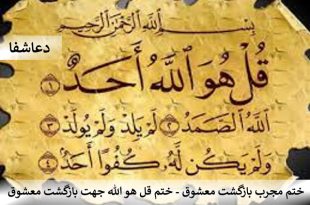 دعاشفا
بِسْمِ اللَّهِ الرَّحْمَنِ الرَّحِيمِ
قُلْ هُوَ اللَّهُ أَحَدٌ ١
اللَّهُ الصَّمَدُ ٢ لَمْ يَلِدْ وَلَمْ يُولَدْ ٣
وَلَمْ يَكُن لَّهُ كُفُوًا أَحَدٌ ٤
ختم مجرب بازگشت معشوق - ختم قل هو الله جهت بازگشت معشوق